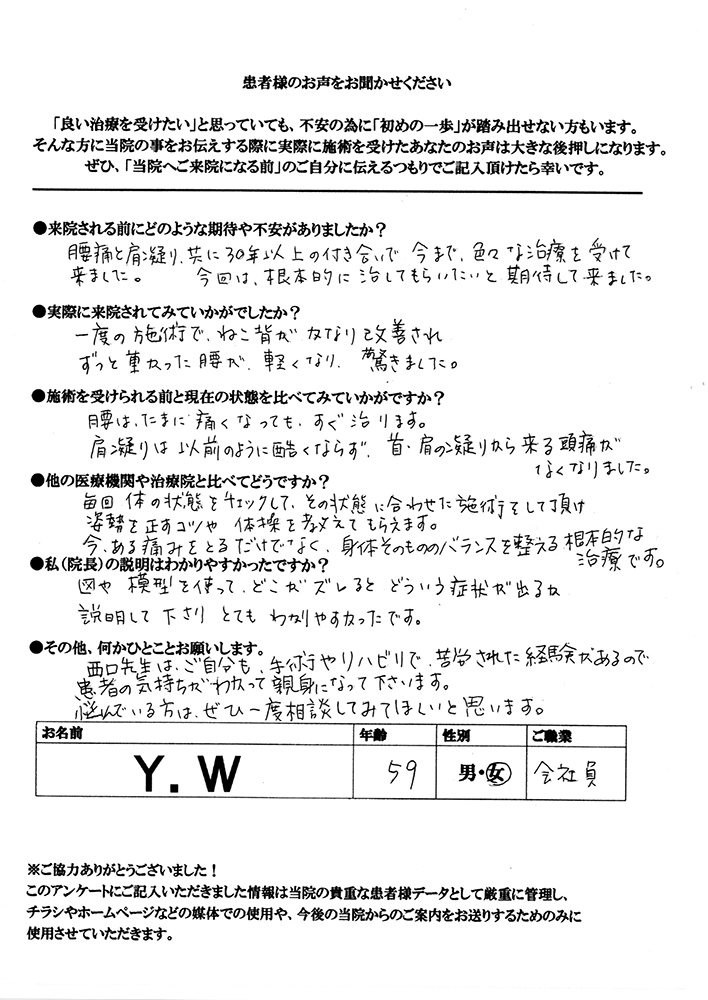 患者様のお声をお聞かせください
「良い治療を受けたい」と思っていても、不安の為に「初めの一歩」が踏み出せない方もいます。
そんな方に当院の事をお伝えする際に実際に施術を受けたあなたのお声は大きな後押しになります。
ぜひ、「当院へご来院になる前」のご自分に伝えるつもりでご記入頂けたら幸いです。
●来院される前にどのような期待や不安がありましたか？
腰痛と肩凝り、共に30年以上の付き合いで 今まで、色々な治療を受けて
来ました。 今回は、根本的に治してもらいたいと期待して来ました。
●実際に来院されてみていかがでしたか？
一度の施術で、ねこ背がかなり改善され
ずっと重かった腰が、軽くなり、驚きました。
●施術を受けられる前と現在の状態を比べてみていかがですか？
腰は、たまに痛くなっても、すぐ治ります。
肩凝りは以前のように酷くならず、首・肩の凝りから来る頭痛が
なくなりました。
●他の医療機関や治療院と比べてどうですか？
毎回 体の状態をチェックして、その状態に合わせた施術をして頂け
姿勢を正すコツや 体操を教えてもらえます。
今、ある痛みをとるだけでなく、身体そのもののバランスを整える根本的な
治療です。
●私（院長）の説明はわかりやすかったですか？
図や模型を使って、どこがズレると どういう症状が出るか
説明して下さり とても わかりやすかったです。
●その他、何かひとことお願いします。
西口先生は、ご自分も、手術やリハビリで、苦労された経験があるので
患者の気持ちがわかって親身になって下さいます。
悩んでいる方は、ぜひ一度相談してみてほしいと思います。
お名前 年齢 性別 ご職業
Y.W 59 男・女 会社員
※ご協力ありがとうございました！
このアンケートにご記入いただきました情報は当院の貴重な患者様データとして厳重に管理し、
チラシやホームページなどの媒体での使用や、今後の当院からのご案内をお送りするためのみに
使用させていただきます。